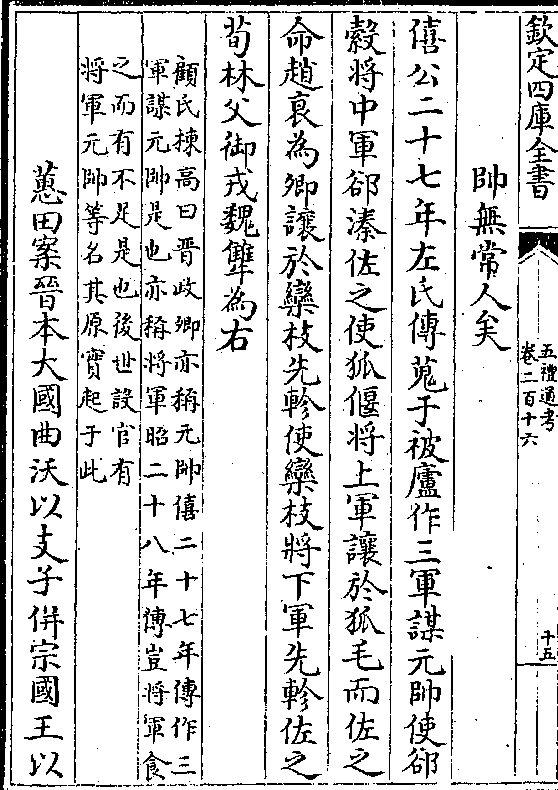 欽定四庫全書
五禮通考
卷二百十六
十五
帥無常人矣
僖公二十七年左氏傳蒐于被廬作三軍謀元帥使郤
縠將中軍郤溱佐之使狐偃將上軍讓於狐毛而佐之
命趙衰為卿讓於欒枝先軫使欒枝將下軍先軫佐之
荀林父御戎魏犨為右
顧氏棟高曰晉政卿亦稱元帥僖二十七年傳作三
軍謀元帥是也亦稱將軍昭二十八年傳豈將軍食
之而有不足是也後世設官有
將軍元帥等名其原實起于此
蕙田案晉本大國曲沃以支子併宗國王以